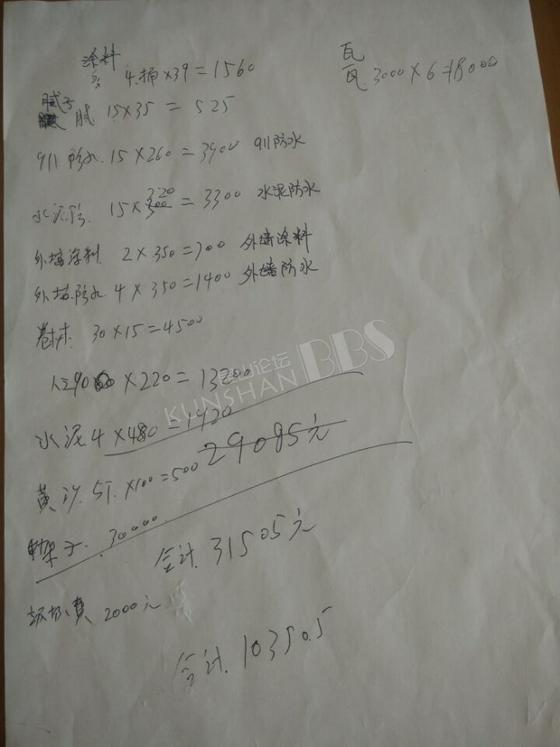 涂料 瓦
4桶×39=1560 瓦3000×6=18000
腻子 腻 15×35=525
911防水.15×260=3900 911防水
水泥防.15×220=3300 水泥防水
外墙涂料 2×350=700 外墙涂料
外墙.防水 4×350=1400 外墙防水
卷材 30×15=4500
×220=13200
水泥4×480=1920
29085元
黄沙.5T.×100=500
架子.30000
合计.31505元
2000元
合计.10350.5
KUNSHAN论坛BBS